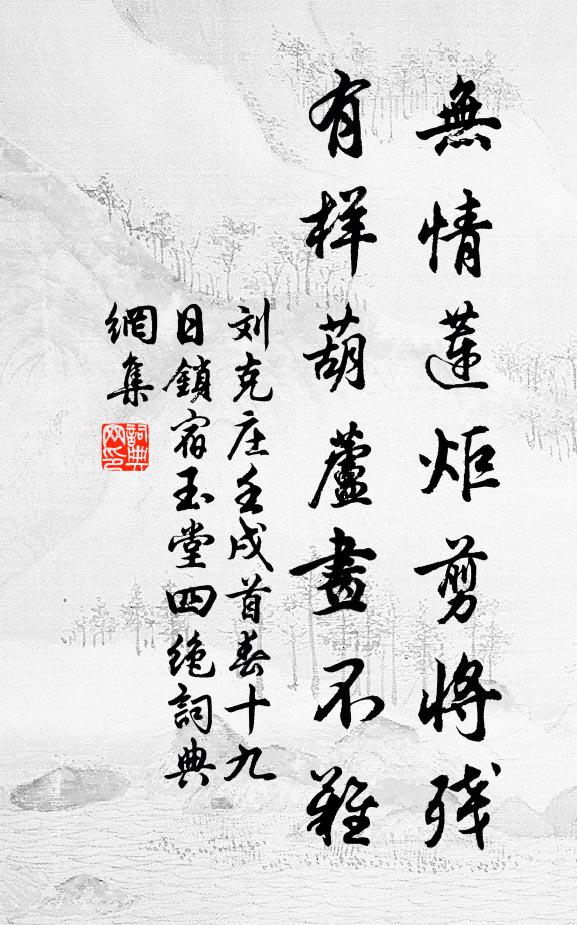 無情蓮炬剪將残
有样葫蘆畫不難
刘克庄壬戌首春十九
日鎖宿玉堂四绝詞典
網集
詞典
网印